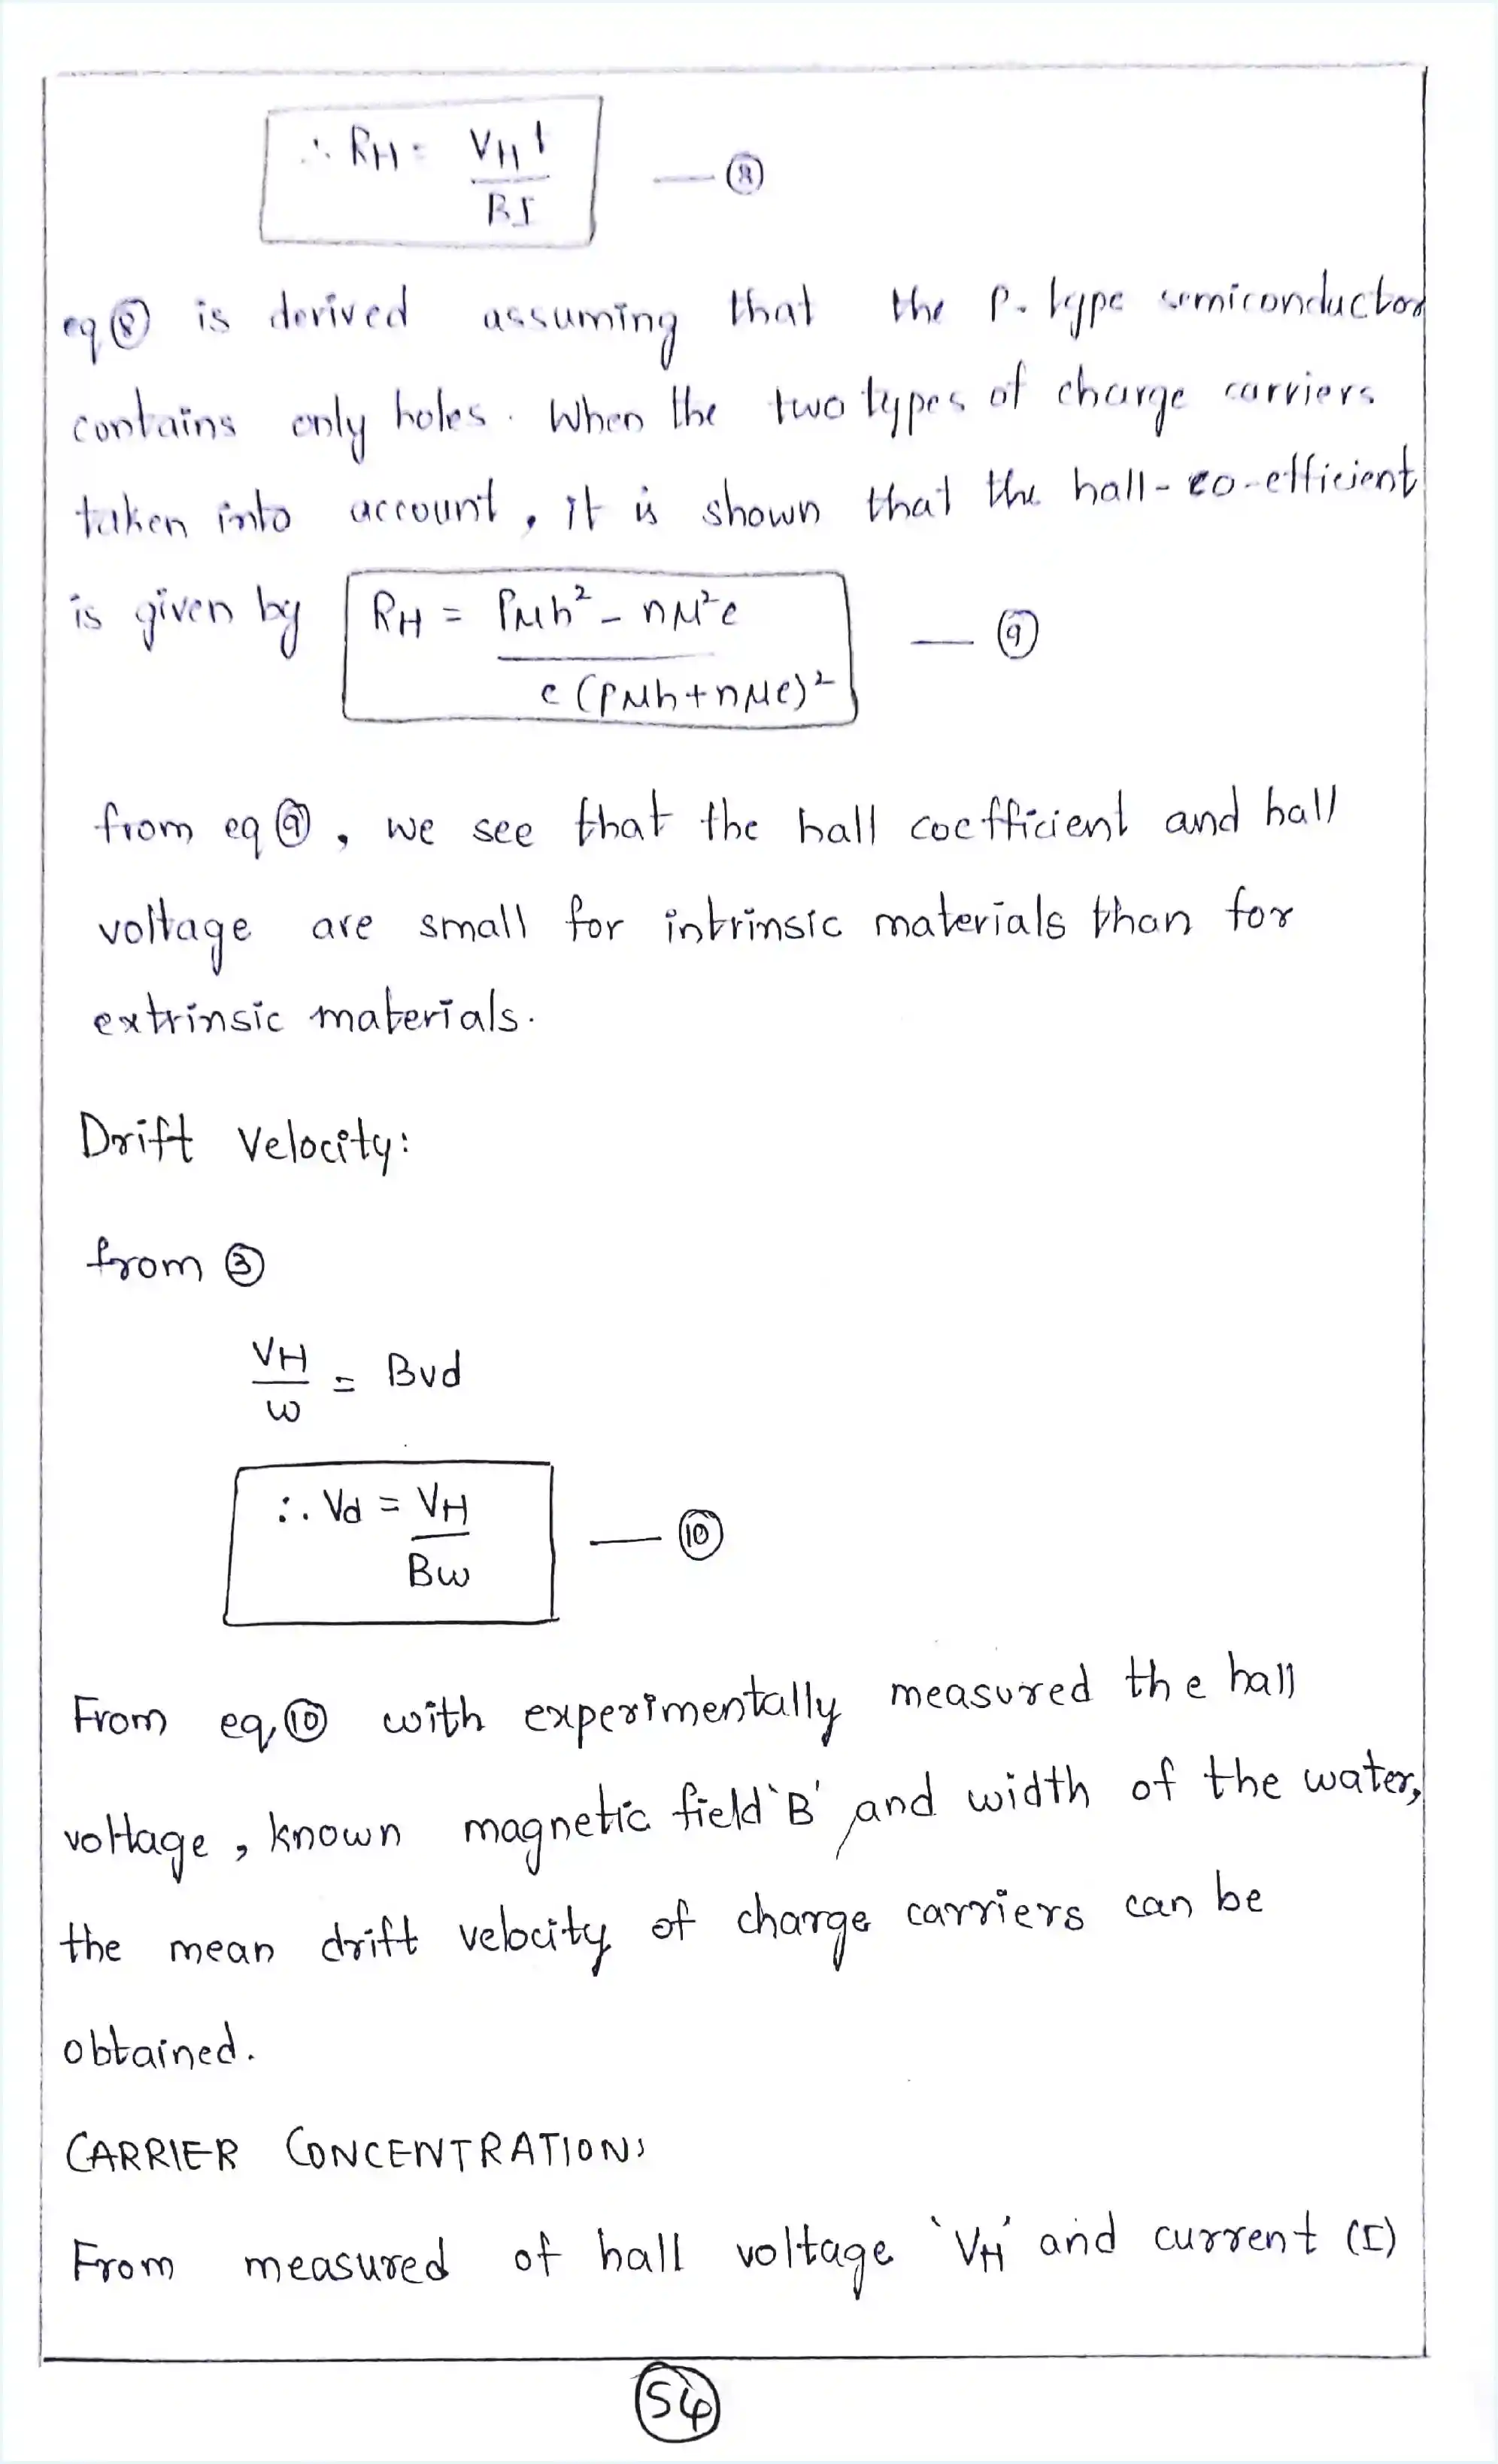 ∴ RH = VH t / BI — ⑧
eq ⑧ is derived assuming that the P-type semiconductor
contains only holes. When the two types of charge carriers
taken into account, it is shown that the hall-co-efficient
is given by RH = Pμh² - nμ²e / e (Pμh + nμe)² — ⑨
from eq ⑨, we see that the hall coefficient and hall
voltage are small for intrinsic materials than for
extrinsic materials.
Drift Velocity:
from ③
VH / w = Bvd
∴ Vd = VH / Bw — ⑩
From eq, ⑩ with experimentally measured the hall
voltage, known magnetic field 'B' and width of the water,
the mean drift velocity of charge carriers can be
obtained.
CARRIER CONCENTRATION:
From measured of hall voltage 'VH' and current (I)
54